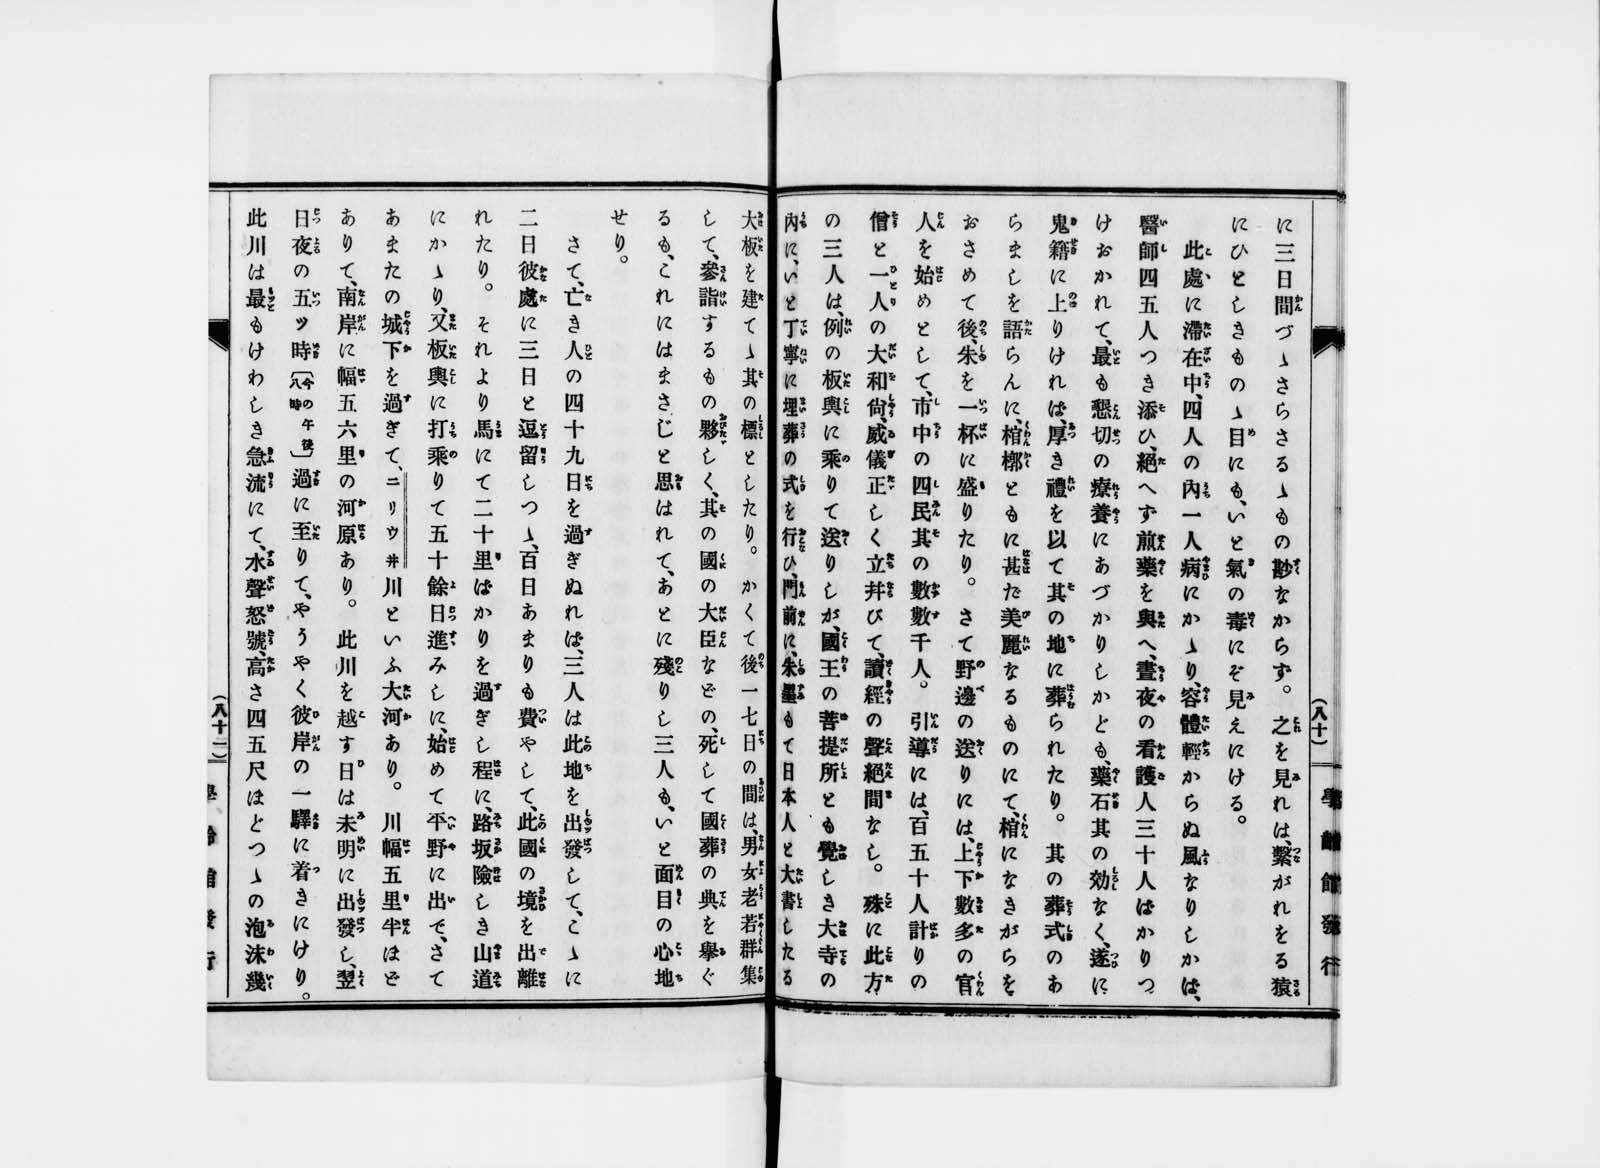 (八十)
學齡館發行
に三日間づゝさらさるゝもの尠なからず。之を見れは、繫がれをる猿
にひとしきものゝ目にも、いと氣の毒にぞ見えにける。
此處に滯在中、四人の內一人病にかゝり、容體輕からぬ風なりしかば、
醫師四五人つき添ひ、絕へず煎藥を與へ、晝夜の看護人三十人ばかりつ
けおかれて、最も懇切の療養にあづかりしかども、藥石其の効なく、遂に
鬼籍に上りければ、厚き禮を以て其の地に葬られたり。其の葬式のあ
らましを語らんに、棺槨ともに甚だ美麗なるものにて、棺になきがらを
おさめて後、朱を一杯に盛りたり。さて野邊の送りには、上下數多の官
人を始めとして、市中の四民其の數數千人。引導には、百五十人計りの
僧と一人の大和尙、威儀正しく立幷びて、讀經の聲絕間なし。殊に此方
の三人は、例の板輿に乘りて送りしが、國王の菩提所とも覺しき大寺の
內に、いと丁寧に埋葬の式を行ひ、門前に、朱墨もて日本人と大書したる
大板を建てゝ其の標としたり。かくて後一七日の間は、男女老若群集
して、參詣するもの夥しく、其の國の大臣などの、死して國葬の典を擧ぐ
るも、これにはまさじと思はれて、あとに殘りし三人も、いと面目の心地
せり。
さて、亡き人の四十九日を過ぎぬれば、三人は此地を出發して、こゝに
二日彼處に三日と逗留しつゝ、百日あまりも費やして、此國の境を出離
れたり。それより馬にて二十里ばかりを過ぎし程に、路坂險しき山道
にかゝり、又板輿に打乘りて五十餘日進みしに、始めて平野に出で、さて
あまたの城下を過ぎて、ニリウ井川といふ大河あり。川幅五里半ほど
ありて、南岸に幅五六里の河原あり。此川を越す日は未明に出發し、翌
日夜の五ッ時〔今の午後八時〕過に至りて、やうやく彼岸の一驛に着きにけり。
此川は最もけわしき急流にて、水聲怒號、高さ四五尺ほどつゝの泡沫幾
(八十一)
學齡館發行